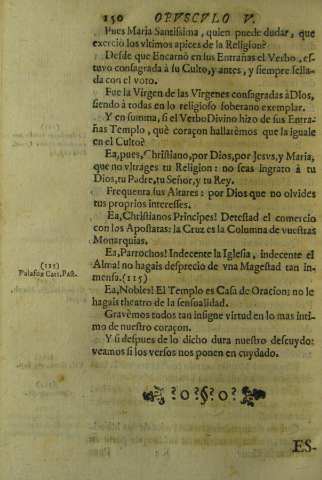 150 OPVSCVLO V.
Pues Maria Santissima, quien puede dudar, que
exerciò los vltimos apices de la Religion?
Desde que Encarnò en sus Entrañas el Verbo, es-
tuvo consagrada à su Culto, y antes, y siempre sella-
da con el voto.
Fue la Virgen de las Virgenes consagradas à Dios,
siendo à todas en lo religioso soberano exemplar.
Y en summa, si el Verbo Divino hizo de sus Entra-
ñas Templo, què coraçon hallarèmos que la iguale
en el Culto?
Ea, pues, Christiano, por Dios, por Jesvs, y Maria,
que no vltrages tu Religion: no seas ingrato à tu
Dios, tu Padre, tu Señor, y tu Rey.
Frequenta sus Altares: por Dios que no olvides
tus proprios interesses.
Ea, Christianos Principes! Detestad el comercio
con los Apostatas: la Cruz es la Columna de vuestras
Monarquias.
Ea, Parrochos! Indecente la Iglesia, indecente el
Alma! no hagais desprecio de vna Magestad tan in-
mensa. (115)
(115)
Palafox Cart. Past.
Ea, Nobles! El Templo es Casa de Oracion: no le
hagais theatro de la sensualidad.
Gravèmos todos tan insigne virtud en lo mas inti-
mo de nuestro coraçon.
Y si despues de lo dicho dura nuestro descuydo:
veamos si los versos nos ponen en cuydado.
?o?§?o?
ES-